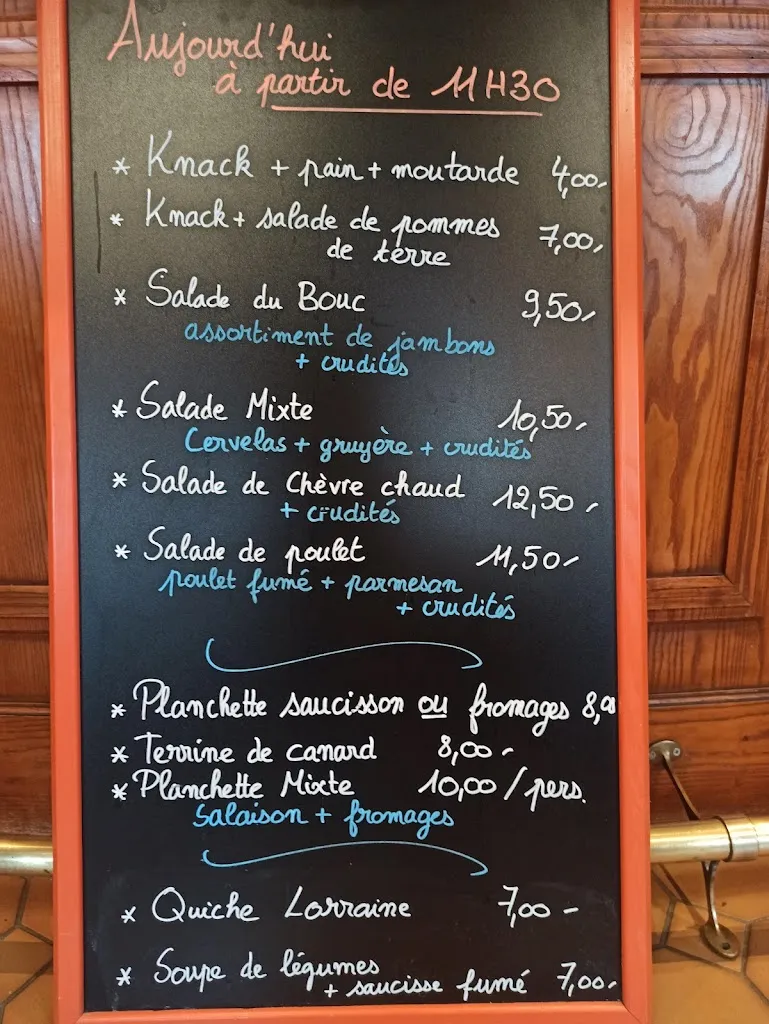 Aujourd'hui
à partir de 11H30
* Knack + pain + moutarde 4,00-
* Knack + salade de pommes 7,00-
de terre
* Salade du Bouc 9,50-
assortiment de jambons
+ crudités
* Salade Mixte 10,50-
Cervelas + gruyère + crudités
* Salade de Chèvre chaud 12,50-
+ crudités
* Salade de poulet 11,50-
poulet fumé + parmesan
+ crudités
* Planchette saucisson ou fromages 8,00
* Terrine de canard 8,00-
* Planchette Mixte 10,00/pers.
Salaison + fromages
* Quiche Lorraine 7,00-
* Soupe de légumes
+ saucisse fumé 7,00-